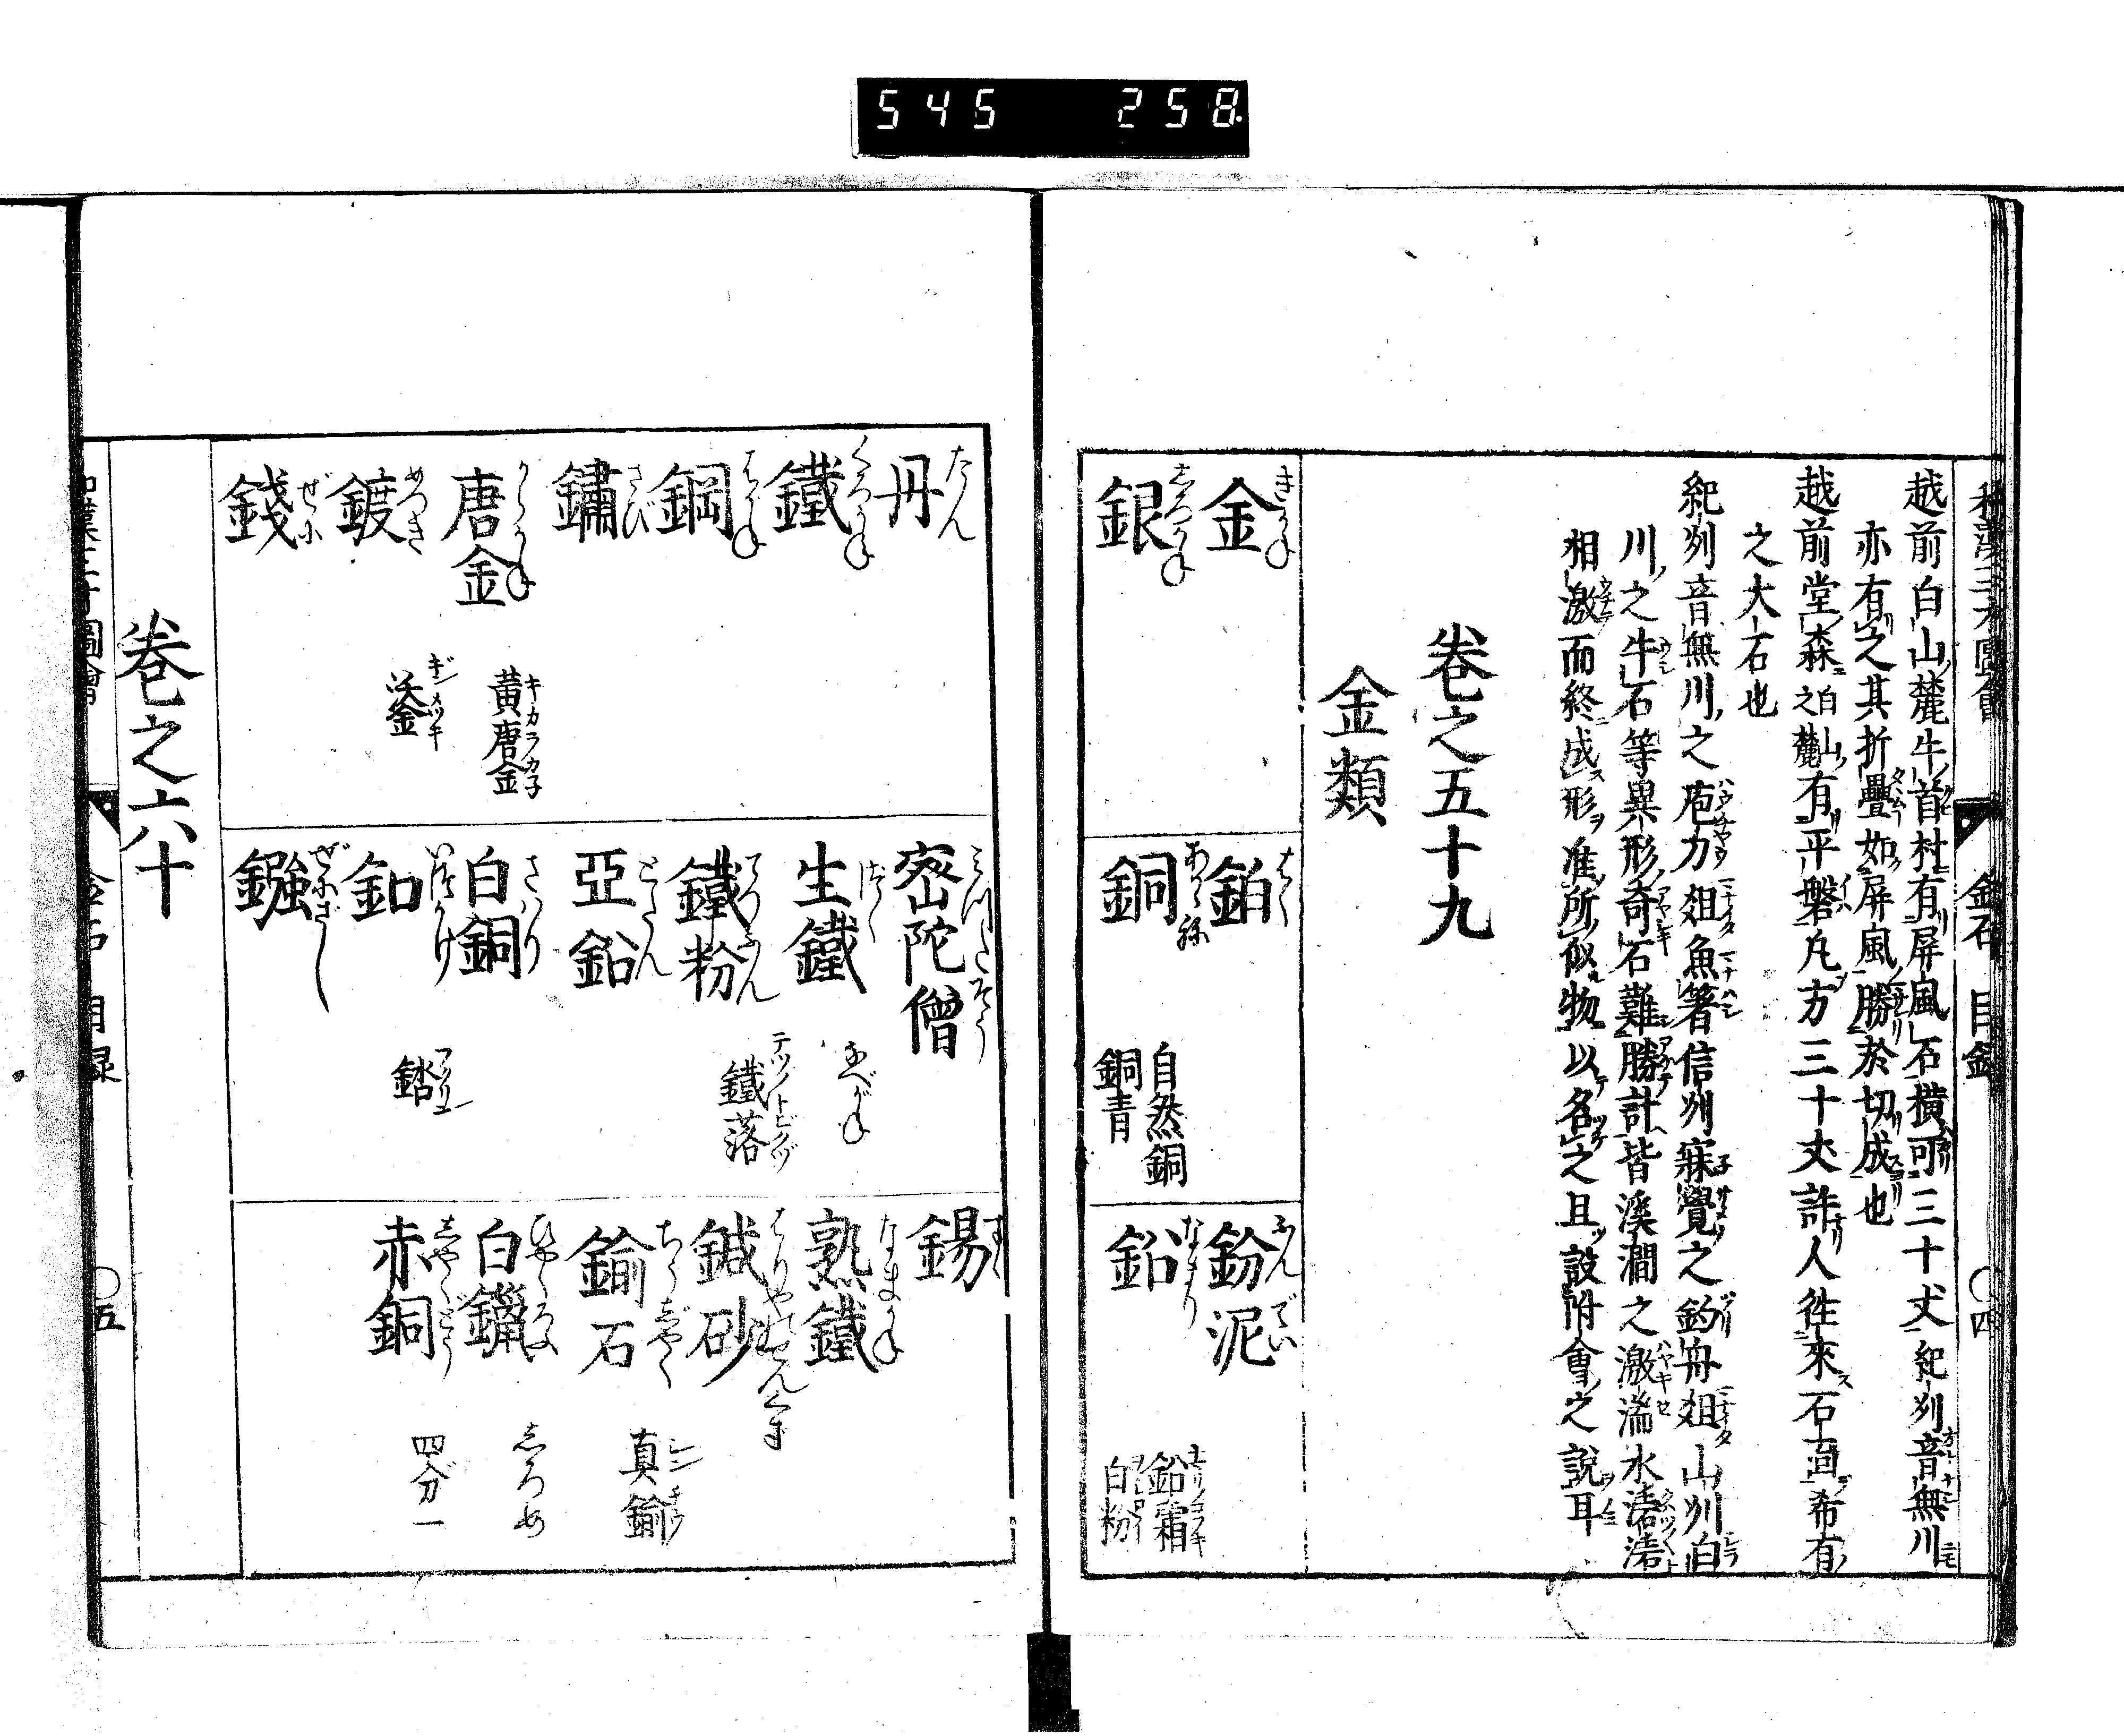 545 258
和漢三才圖會 金石 目録 〇四
越前白山麓牛首村有屏風石横可三十丈紀州音無川
亦有之其折疊如屏風勝於切成也
越前堂森白山之麓有平磐凡方三十丈許人徃來石面希有
之大石也
紀州音無川之庖刀爼魚箸信州寐覺之釣舟爼山州白
川之牛石等異形奇石難勝計皆溪澗之激湍水濤濤
相激而終成形准所似物以名之且設附會之說耳
卷之五十九
金類
金 きがね
鉑 はく
鈖泥 ふんでい
銀 志ろかね
銅 あかがね 自然銅 銅青
鉛 なまり 鉛霜 白粉
丹 たん
密陀僧 みつだそう
錫 すゞ
鐵 くろがね
生鐵 づく なべがね
熟鐵 なまがね
鋼 はがね
鐵粉 てつふん 鐵落 テツノトビクヅ
鍼砂 はりやのせんくず
鏽 さび
亞鉛 とたん
鍮石 ちうじやく 真鍮 シンチウ
唐金 からかね 黃唐金 キカラカネ
白銅 さはり
白鑞 びやくらう 志ろめ
鍍 めつき 鋈 ギンメツキ
釦 いつかけ 錔
赤銅 志やくどう 四分一
錢 ぜに
鏹 ぜにざし
卷之六十
和漢三才圖會 金石 目録 〇五